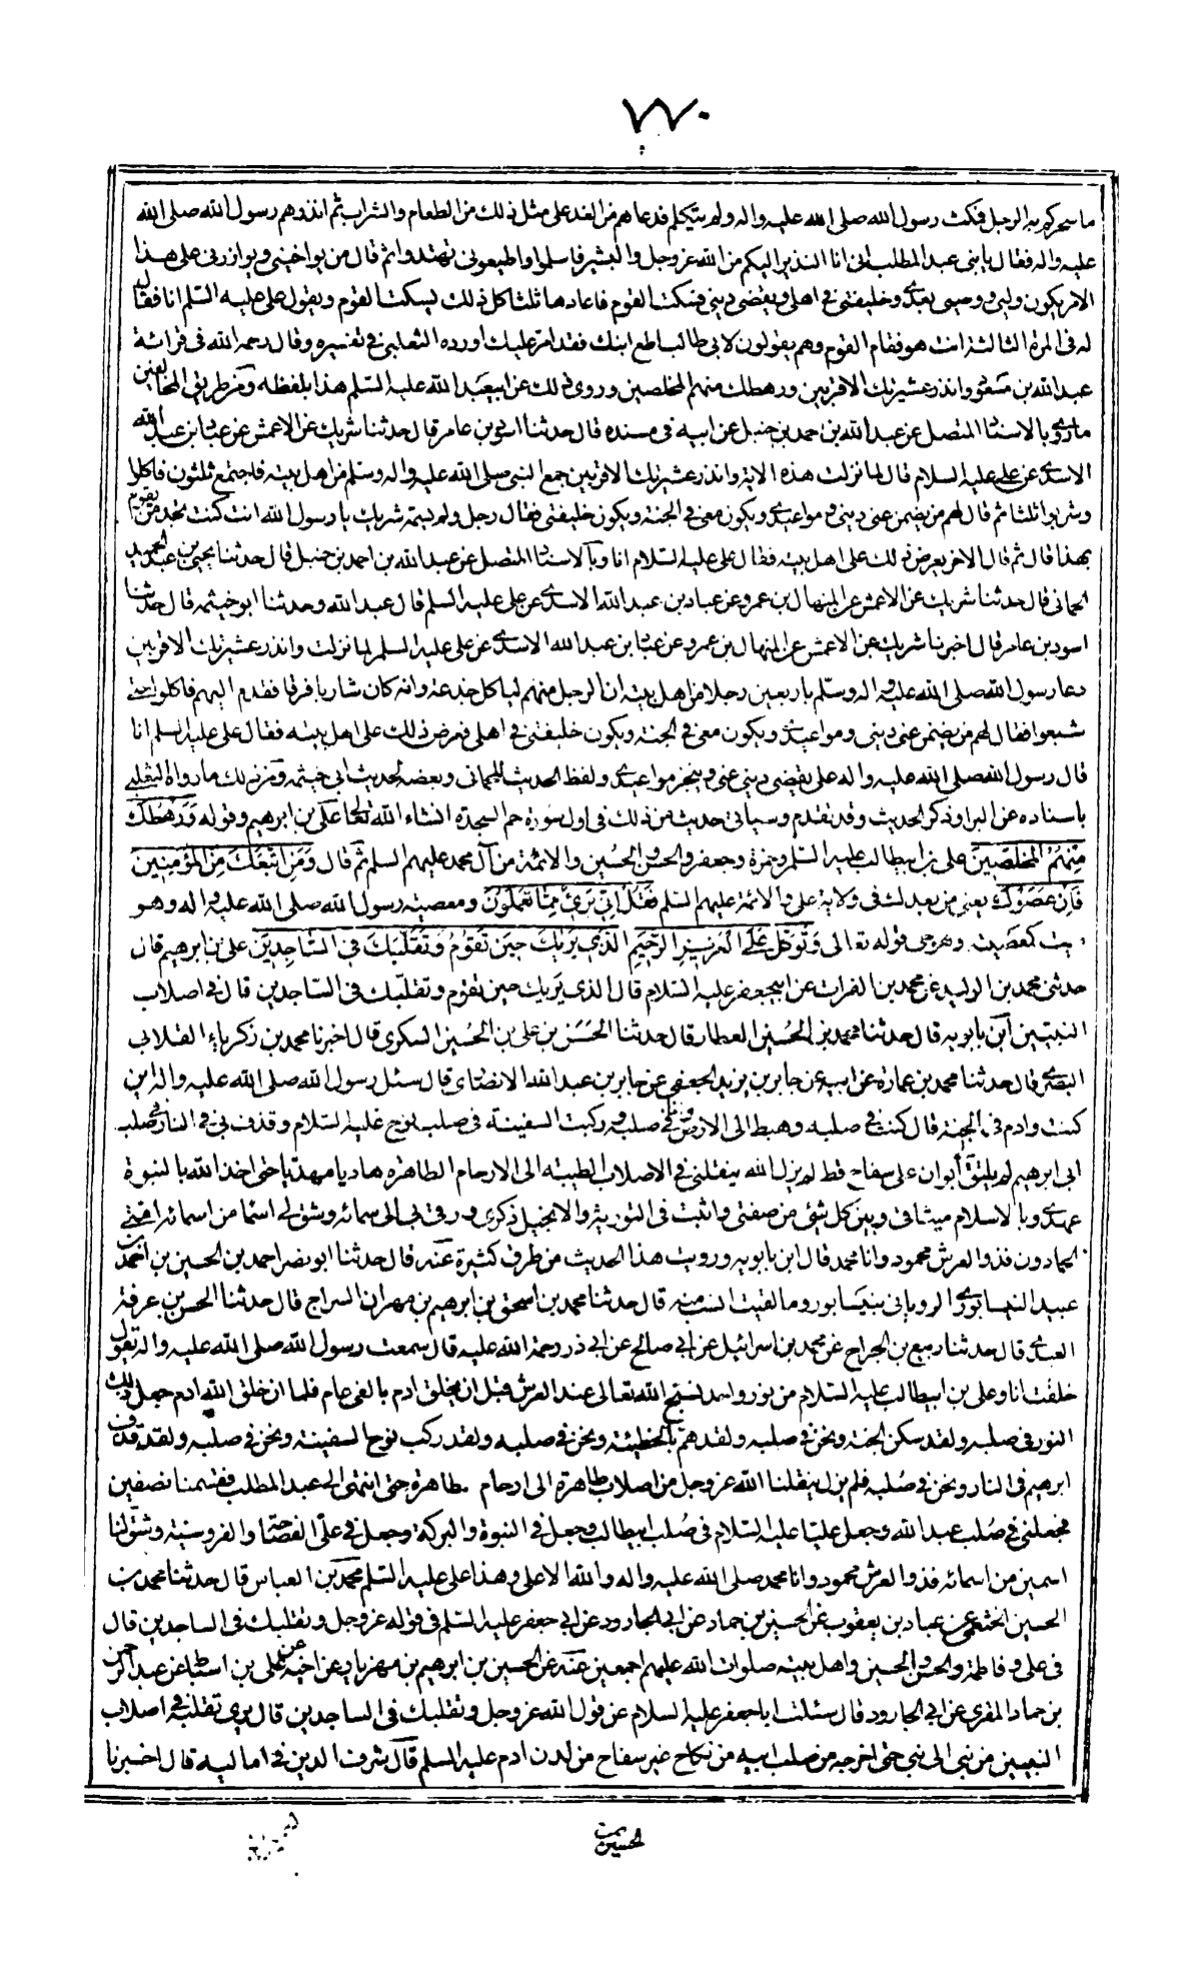 ٧٧٠
ما سحركم به الرجل فسكت رسول الله صلى الله عليه واله ولم يتكلم فدعاهم من الغد على مثل ذلك من الطعام والشراب ثم انذرهم رسول الله صلى الله
عليه واله فقال يا بنى عبد المطلب انى انا النذير اليكم من الله عز وجل والبشير فاسلموا واطيعونى تهتدوا ثم قال من يواخينى ويوازرنى على هذا
الامر يكون وليى ووصيى بعدى وخليفتى فى اهلى ويقضى دينى فسكت القوم فاعادها ثلثا كل ذلك يسكت القوم ويقول على عليه السلم انا فقال
له فى المرة الثالثة انت هو فقام القوم وهم يقولون لابى طالب اطع ابنك فقد امر عليك اورده الثعلبى فى تفسيره وقال رحمه الله فى قرائة
عبد الله بن مسعود وانذر عشيرتك الاقربين ورهطك منهم المخلصين وروى ذلك عن ابيعبد الله عليه السلم هذا بلفظه ومن طريق المخالفين
ما روى بالاسناد المتصل عن عبد الله بن احمد بن حنبل عن ابيه فى مسنده قال حدثنا اسود بن عامر قال حدثنا شريك عن الاعمش عن عباد بن عبد الله
الاسدى عن على عليه السلام قال لما نزلت هذه الاية وانذر عشيرتك الاقربين جمع النبى صلى الله عليه واله وسلم من اهل بيته فاجتمع ثلثون فاكلوا
وشربوا ثلثا ثم قال لهم من يضمن عنى دينى ومواعيدى ويكون معى فى الجنة ويكون خليفتى فقال رجل ولم يسمه شريك يا رسول الله انت كنت تجد من يقوم
بهذا قال ثم قال الاخر يعرض ذلك على اهل بيته فقال على عليه السلام انا وبالاسناد المتصل عن عبد الله بن احمد بن حنبل قال حدثنا يحيى بن عبد الحميد
الحمانى قال حدثنا شريك عن الاعمش عن المنهال بن عمرو عن عباد بن عبد الله الاسدى عن على عليه السلم قال عبد الله وحدثنا ابو خيثمه قال حدثنا
اسود بن عامر قال اخبرنا شريك عن الاعمش عن المنهال بن عمرو عن عباد بن عبد الله الاسدى عن على عليه السلم لما نزلت وانذر عشيرتك الاقربين
دعا رسول الله صلى الله عليه واله وسلم باربعين رجلا من اهل بيته ان الرجل منهم لياكل جذعة وانه كان شاربا فرقا فقدم اليهم فاكلوا حتى
شبعوا فقال لهم من يضمن عنى دينى ومواعيدى ويكون معى فى الجنة ويكون خليفتى فى اهلى فعرض ذلك على اهل بيته فقال على عليه السلم انا
قال رسول الله صلى الله عليه واله على يقضى دينى عنى وينجز مواعيدى ولفظ الحديث للحمانى وبعضه لحديث ابى خيثمه ومن ذلك ما رواه الثعلبى
باسناده عن البرا وذكر الحديث وقد تقدم وسياتى حديث من ذلك فى اول سورة حم السجدة انشاء الله تعالى على بن ابرهيم وقوله ورهطك
منهم المخلصين على بن ابيطالب عليه السلم وحمزة وجعفر والحسن والحسين والائمة من آل محمد عليهم السلم ثم قال ومن اتبعك من المؤمنين
فان عصوك يعنى من بعدك فى ولاية على والائمة عليهم السلم فقل انى برىء مما تعملون ومعصيته رسول الله صلى الله عليه واله وهو
قوله تعالى وتوكل على العزيز الرحيم الذى يريك حين تقوم وتقلبك فى الساجدين على بن ابرهيم قال
حدثنى محمد بن الوليد عن محمد بن الفرات عن ابيجعفر عليه السلام قال الذى يريك حين تقوم وتقلبك فى الساجدين قال فى اصلاب
النبيين ابن بابويه قال حدثنا محمد بن الحسين العطار قال حدثنا الحسن بن على بن الحسين السكرى قال اخبرنا محمد بن زكرياء الغلابى
البصرى قال حدثنا محمد بن عمارة عن ابيه عن جابر بن يزيد الجعفى عن جابر بن عبد الله الانصارى قال سئل رسول الله صلى الله عليه واله اين
كنت وادم فى الجنة قال كنت فى صلبه وهبط الى الارض وانا فى صلبه وركبت السفينة فى صلب نوح عليه السلام وقذف بى فى النار فى صلب
ابى ابرهيم لم يلتق ابوان على سفاح قط لم يزل الله ينقلنى فى الاصلاب الطيبه الى الارحام الطاهرة هاديا مهديا حتى اخذ الله بالنبوة
عهدى وبالاسلام ميثاقى وبين كل شئ من صفتى واثبت فى التورية والانجيل ذكرى ورقى بى الى سمائه وشق لى اسما من اسمائه امتى
الحمادون فذو العرش محمود وانا محمد قال ابن بابويه ورويت هذا الحديث من طرق كثيرة عنه قال حدثنا ابو نصر احمد بن الحسين بن احمد بن
عبيد النيسابورى المروانى بنيسابور وما لقيت انصب منه قال حدثنا محمد بن اسحق بن ابرهيم بن مهران السراج قال حدثنا الحسن بن عرفة
العبدى قال حدثنا وكيع بن الجراح عن محمد بن اسرائيل عن ابى صالح عن ابى ذر رحمة الله عليه قال سمعت رسول الله صلى الله عليه واله يقول
خلقت انا وعلى بن ابيطالب عليه السلام من نور واحد نسبح الله تعالى عند العرش قبل ان يخلق ادم بالفى عام فلما ان خلق الله ادم جعل ذلك
النور فى صلبه ولقد سكن الجنة ونحن فى صلبه ولقد هم بالخطيئة ونحن فى صلبه ولقد ركب نوح السفينة ونحن فى صلبه ولقد قذف
ابرهيم فى النار ونحن فى صلبه فلم يزل ينقلنا الله عز وجل من اصلاب طاهرة الى ارحام طاهرة حتى انتهى الى عبد المطلب فقسمنا نصفين
فجعلنى فى صلب عبد الله وجعل عليا عليه السلام فى صلب ابيطالب وجعل فى النبوة والبركة وجعل فى على الفصاحة والفروسية وشق لنا
اسمين من اسمائه فذو العرش محمود وانا محمد صلى الله عليه واله والله الاعلى وهذا على عليه السلم محمد بن العباس قال حدثنا محمد بن
الحسين الخثعمى عن عباد بن يعقوب عن الحسين بن حماد عن ابى الجارود عن ابى جعفر عليه السلم فى قوله عز وجل وتقلبك فى الساجدين قال
فى على وفاطمة والحسن والحسين واهل بيته صلوات الله عليهم اجمعين عنه عن الحسين بن ابرهيم بن مهزيار عن اخيه عن على بن اسباط عن عبد الرحمن
بن حماد المقرى عن ابى الجارود قال سئلت ابا جعفر عليه السلام عن قول الله عز وجل وتقلبك فى الساجدين قال يرى تقلبه فى اصلاب
النبيين من نبى الى نبى حتى اخرجه من صلب ابيه من نكاح غير سفاح من لدن ادم عليه السلم قال شرف الدين فى اماليه قال اخبرنا
الحسين بن